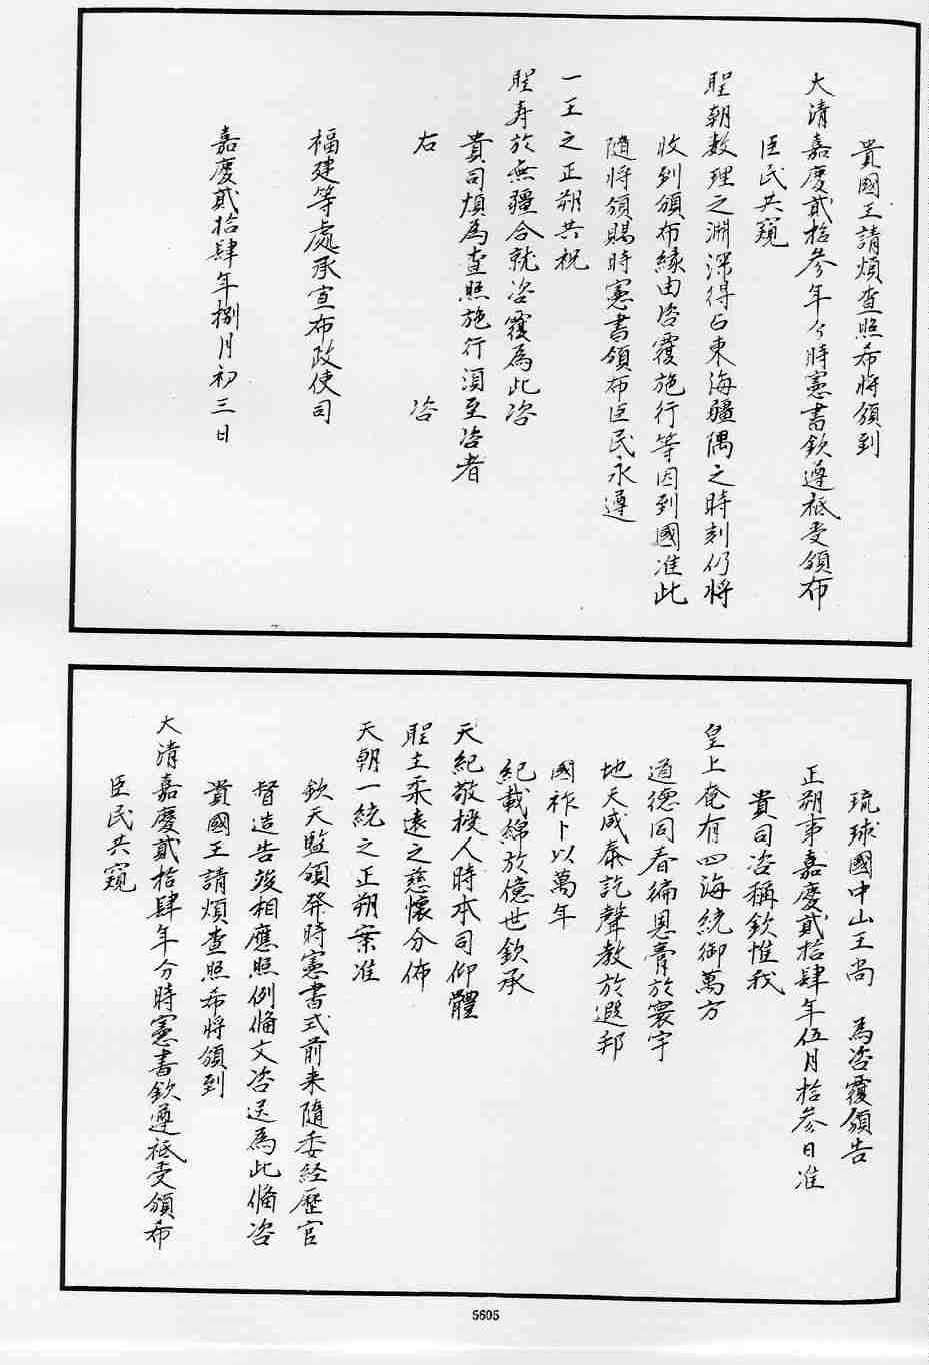 貴國王請煩查照希將頒到
大清嘉慶貳拾參年分時憲書欽遵祗受頒布
臣民共窺
聖朝数理之淵深得占東海疆隅之時刻仍将
收到頒布緣由咨覆施行等因到國准此
隨将頒賜時憲書頒布臣民永遵
一王之正朔共祝
聖寿於無疆合就咨覆為此咨
貴司煩為查照施行湏至咨者
右 咨
福建等處承宣布政使司
嘉慶貳拾肆年捌月初三日
琉球國中山王尚 為咨覆頒告
正朔事嘉慶貳拾肆年伍月拾參日准
貴司咨稱欽惟我
皇上奄有四海統御萬方
道德同春徧恩膏於寰宇
地天咸泰訖聲教於遐邦
國祚卜以萬年
紀載綿於億世欽承
天紀敬授人時本司仰體
聖主柔遠之慈懷分佈
天朝一統之正朔案准
欽天監頒発時憲書式前来隨委経歷官
督造告竣相應照例俻文咨送為此俻咨
貴國王請煩查照希将頒到
大清嘉慶貳拾肆年分時憲書欽遵祗受頒布
臣民共窺
5605